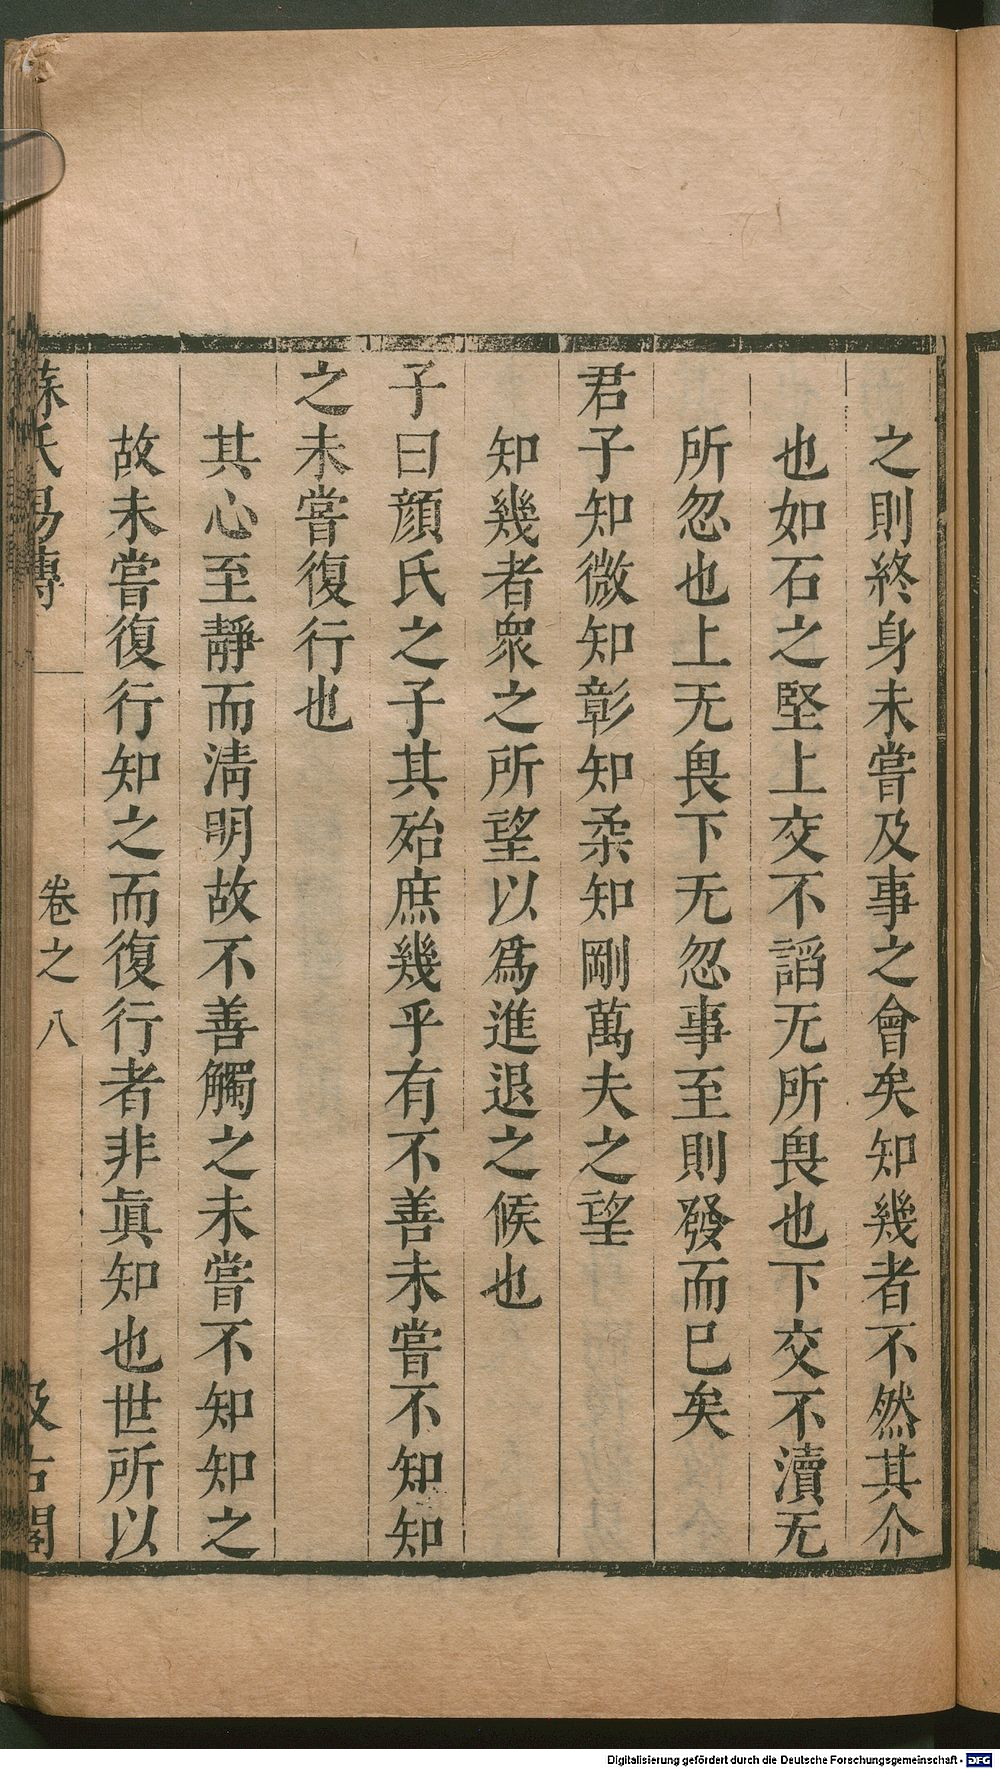 之則終身未嘗及事之會矣知幾者不然其介
也如石之堅上交不謟无所畏也下交不瀆无
所忽也上无畏下无忽事至則發而已矣
君子知微知彰知柔知剛萬夫之望
知幾者衆之所望以爲進退之候也
子曰顔氏之子其殆庶幾乎有不善未嘗不知知
之未嘗復行也
其心至靜而淸明故不善觸之未嘗不知知之
故未嘗復行知之而復行者非眞知也世所以
蘇氏易傳
卷之八
汲古閣
Digitalisierung gefördert durch die Deutsche Forschungsgemeinschaft - DFG